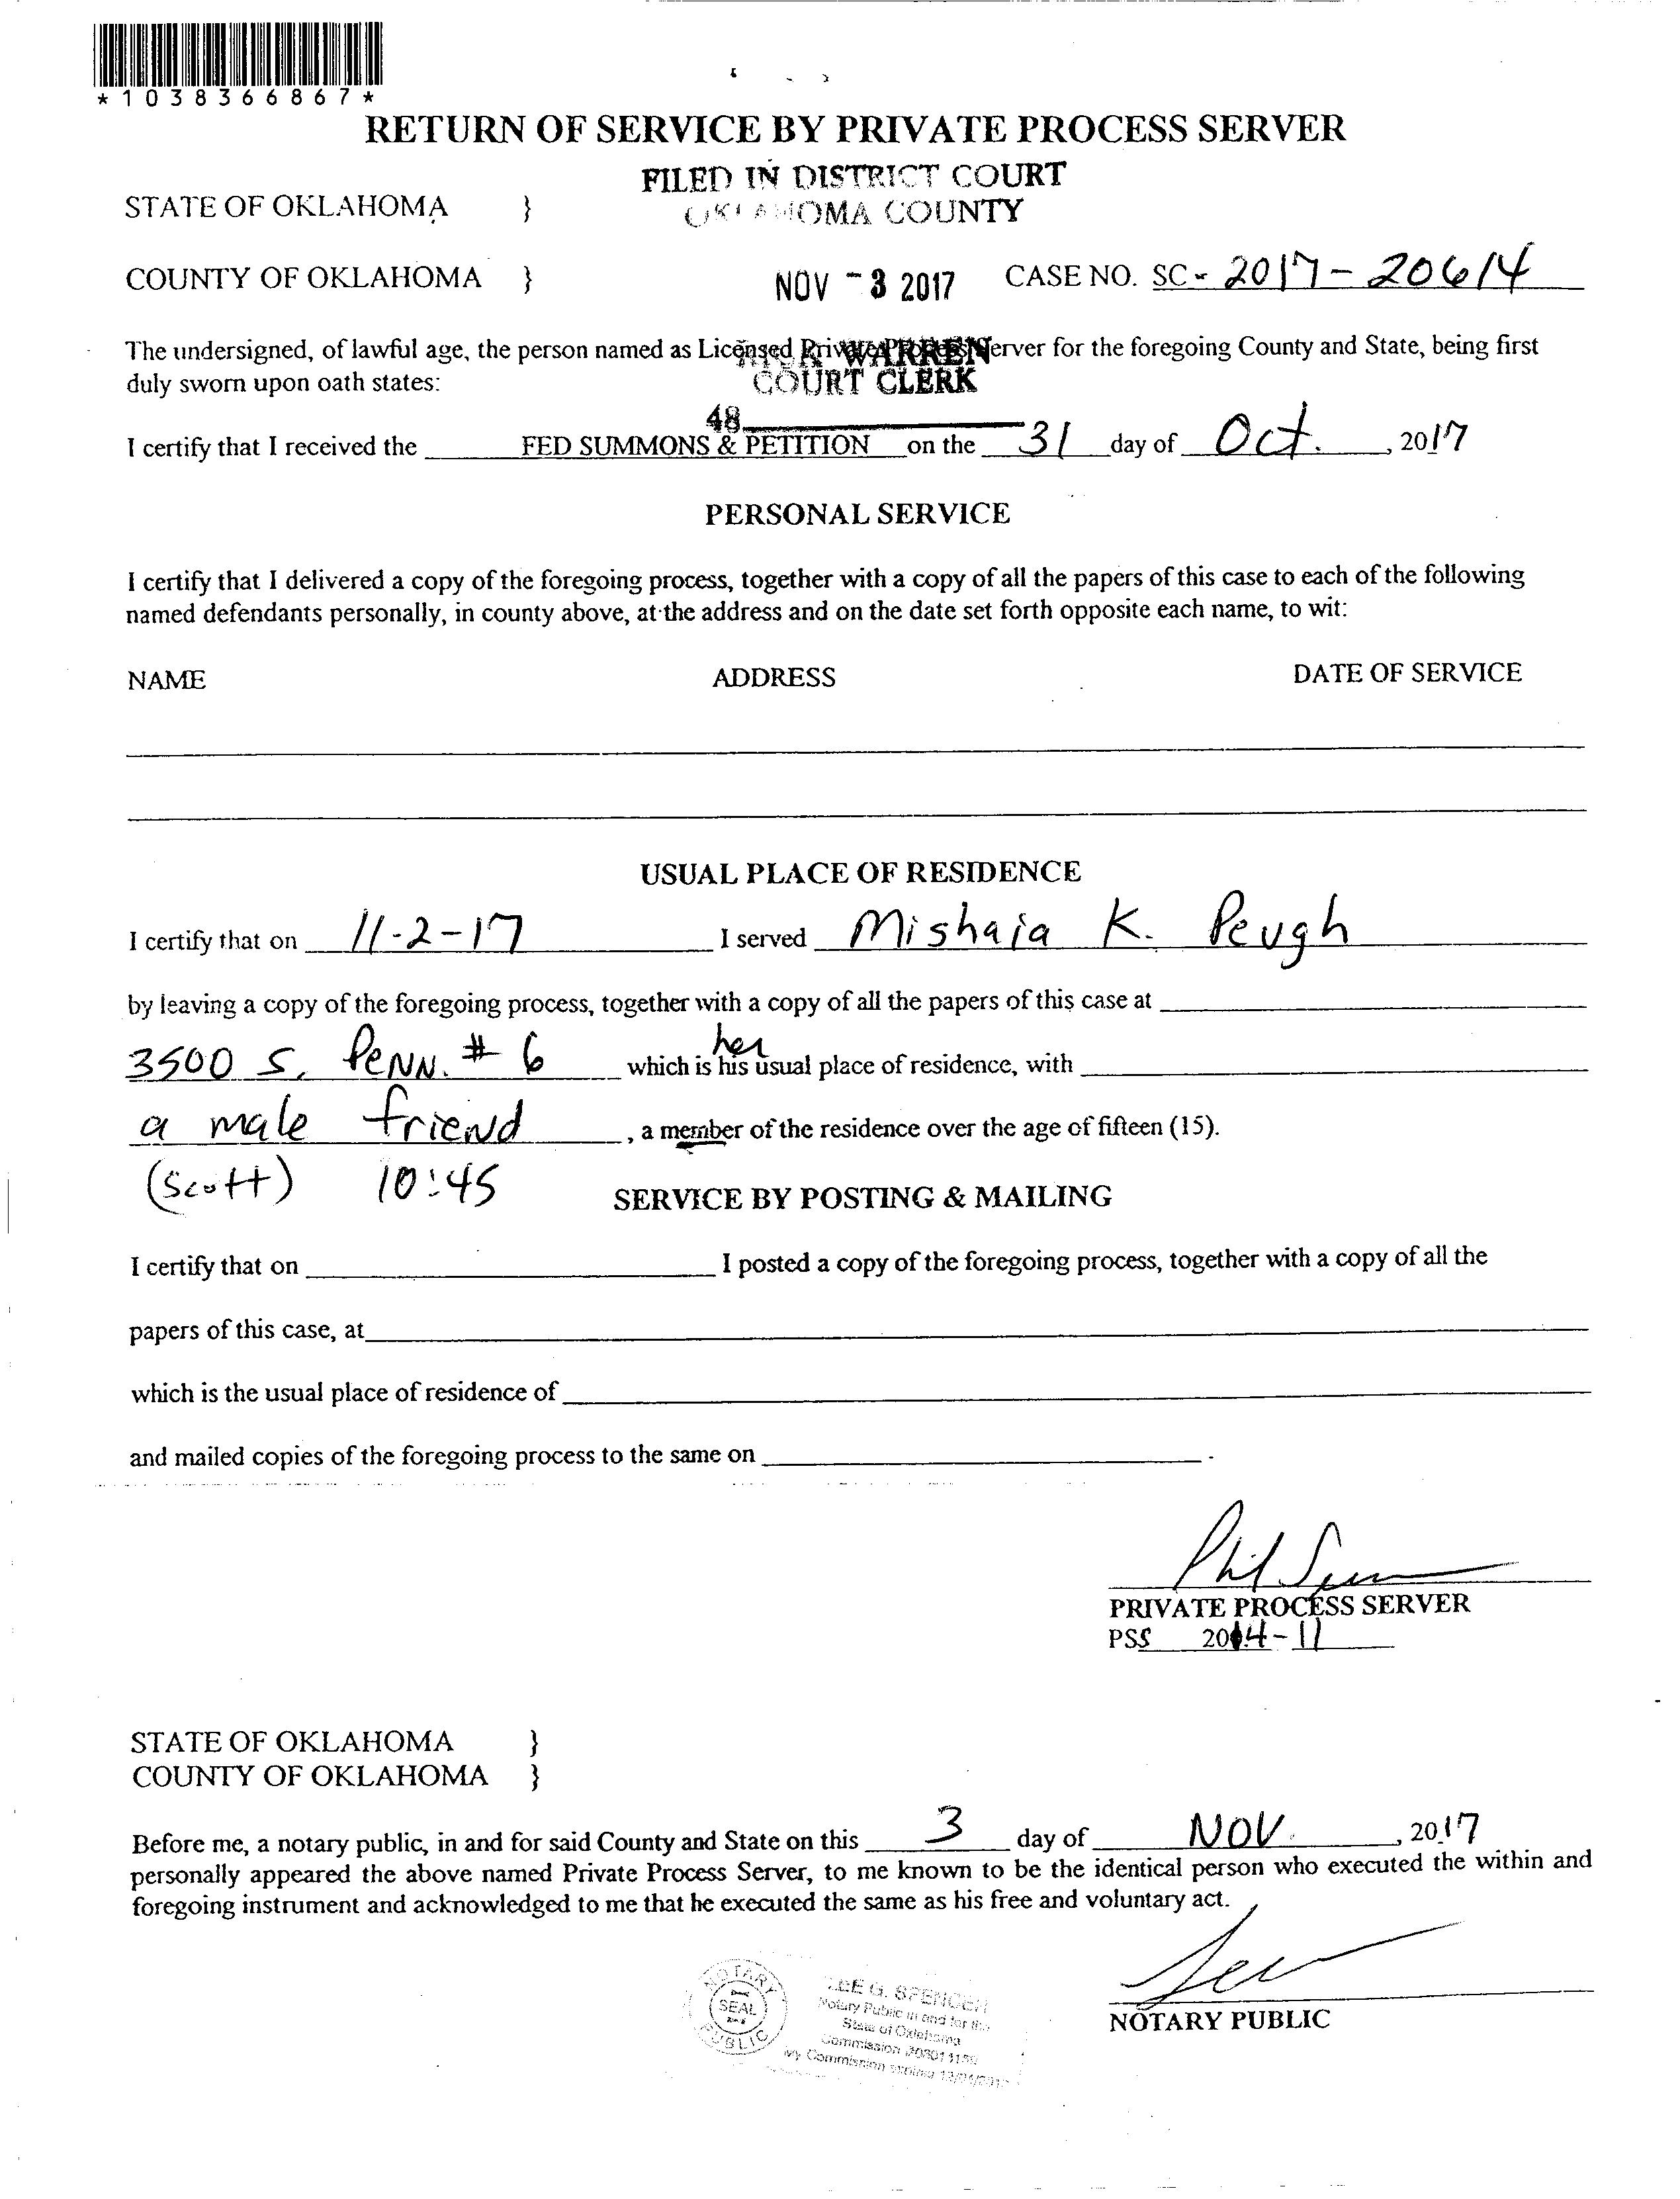 *1038366867*
RETURN OF SERVICE BY PRIVATE PROCESS SERVER
FILED IN DISTRICT COURT
OKLAHOMA COUNTY
STATE OF OKLAHOMA }
COUNTY OF OKLAHOMA }
NOV - 3 2017 CASE NO. SC - 2017 - 20614
The undersigned, of lawful age, the person named as Licensed Private Process Server for the foregoing County and State, being first
WARREN
duly sworn upon oath states:
COURT CLERK
48
I certify that I received the FED SUMMONS & PETITION on the 31 day of Oct. , 2017
PERSONAL SERVICE
I certify that I delivered a copy of the foregoing process, together with a copy of all the papers of this case to each of the following
named defendants personally, in county above, at the address and on the date set forth opposite each name, to wit:
NAME ADDRESS DATE OF SERVICE
USUAL PLACE OF RESIDENCE
I certify that on 11-2-17 I served Mishaia K. Peugh
by leaving a copy of the foregoing process, together with a copy of all the papers of this case at
her
3500 S. PENN. # 6 which is his usual place of residence, with
a male friend , a member of the residence over the age of fifteen (15).
(Scott) 10:45
SERVICE BY POSTING & MAILING
I certify that on I posted a copy of the foregoing process, together with a copy of all the
papers of this case, at
which is the usual place of residence of
and mailed copies of the foregoing process to the same on .
Phil
PRIVATE PROCESS SERVER
PSS 2014-11
STATE OF OKLAHOMA }
COUNTY OF OKLAHOMA }
Before me, a notary public, in and for said County and State on this 3 day of NOV. , 2017
personally appeared the above named Private Process Server, to me known to be the identical person who executed the within and
foregoing instrument and acknowledged to me that he executed the same as his free and voluntary act.
NOTARY PUBLIC
NOTARY
SEAL
PUBLIC
LEE G. SPENCER
Notary Public in and for the
State of Oklahoma
Commission
My Commission expires